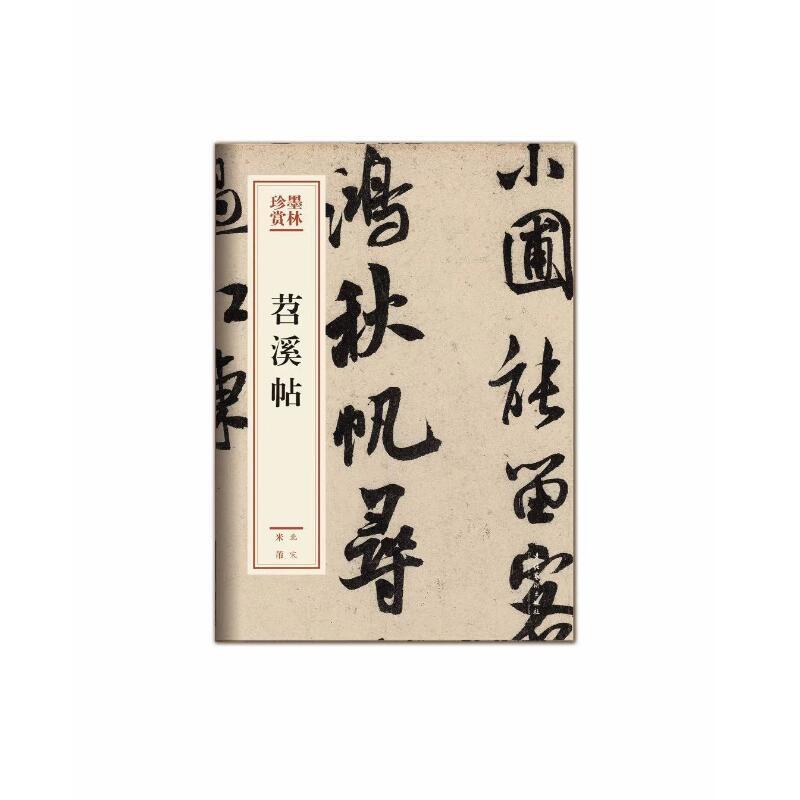 墨林
珍赏
苕溪帖
北宋
米芾
小圃能留客
鸿秋帆寻
过江东